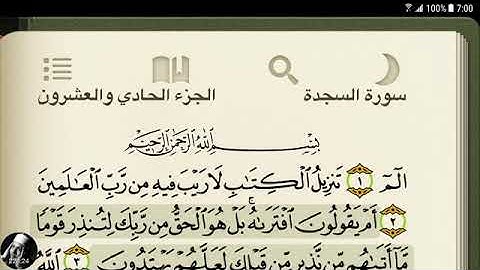 100% 7:00
سورة السجدة الجزء الحادي والعشرون
بِسْمِ ٱللَّهِ ٱلرَّحْمَٰنِ ٱلرَّحِيمِ
الٓمٓ ١ تَنزِيلُ ٱلْكِتَٰبِ لَا رَيْبَ فِيهِ مِن رَّبِّ ٱلْعَٰلَمِينَ
٢ أَمْ يَقُولُونَ ٱفْتَرَىٰهُ ۚ بَلْ هُوَ ٱلْحَقُّ مِن رَّبِّكَ لِتُنذِرَ قَوْمًا
مَّآ أَتَىٰهُم مِّن نَّذِيرٍ مِّن قَبْلِكَ لَعَلَّهُمْ يَهْتَدُونَ ٣ ٱللَّهُ